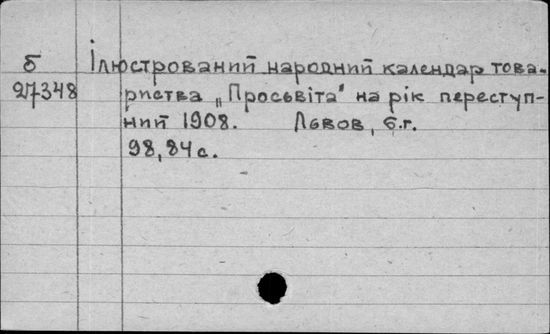 б Ілюстрований народний календар това-
27348 риства „Просьвіта" на рік переступ-
ний 1908. Львов, б.г.
98,84с.